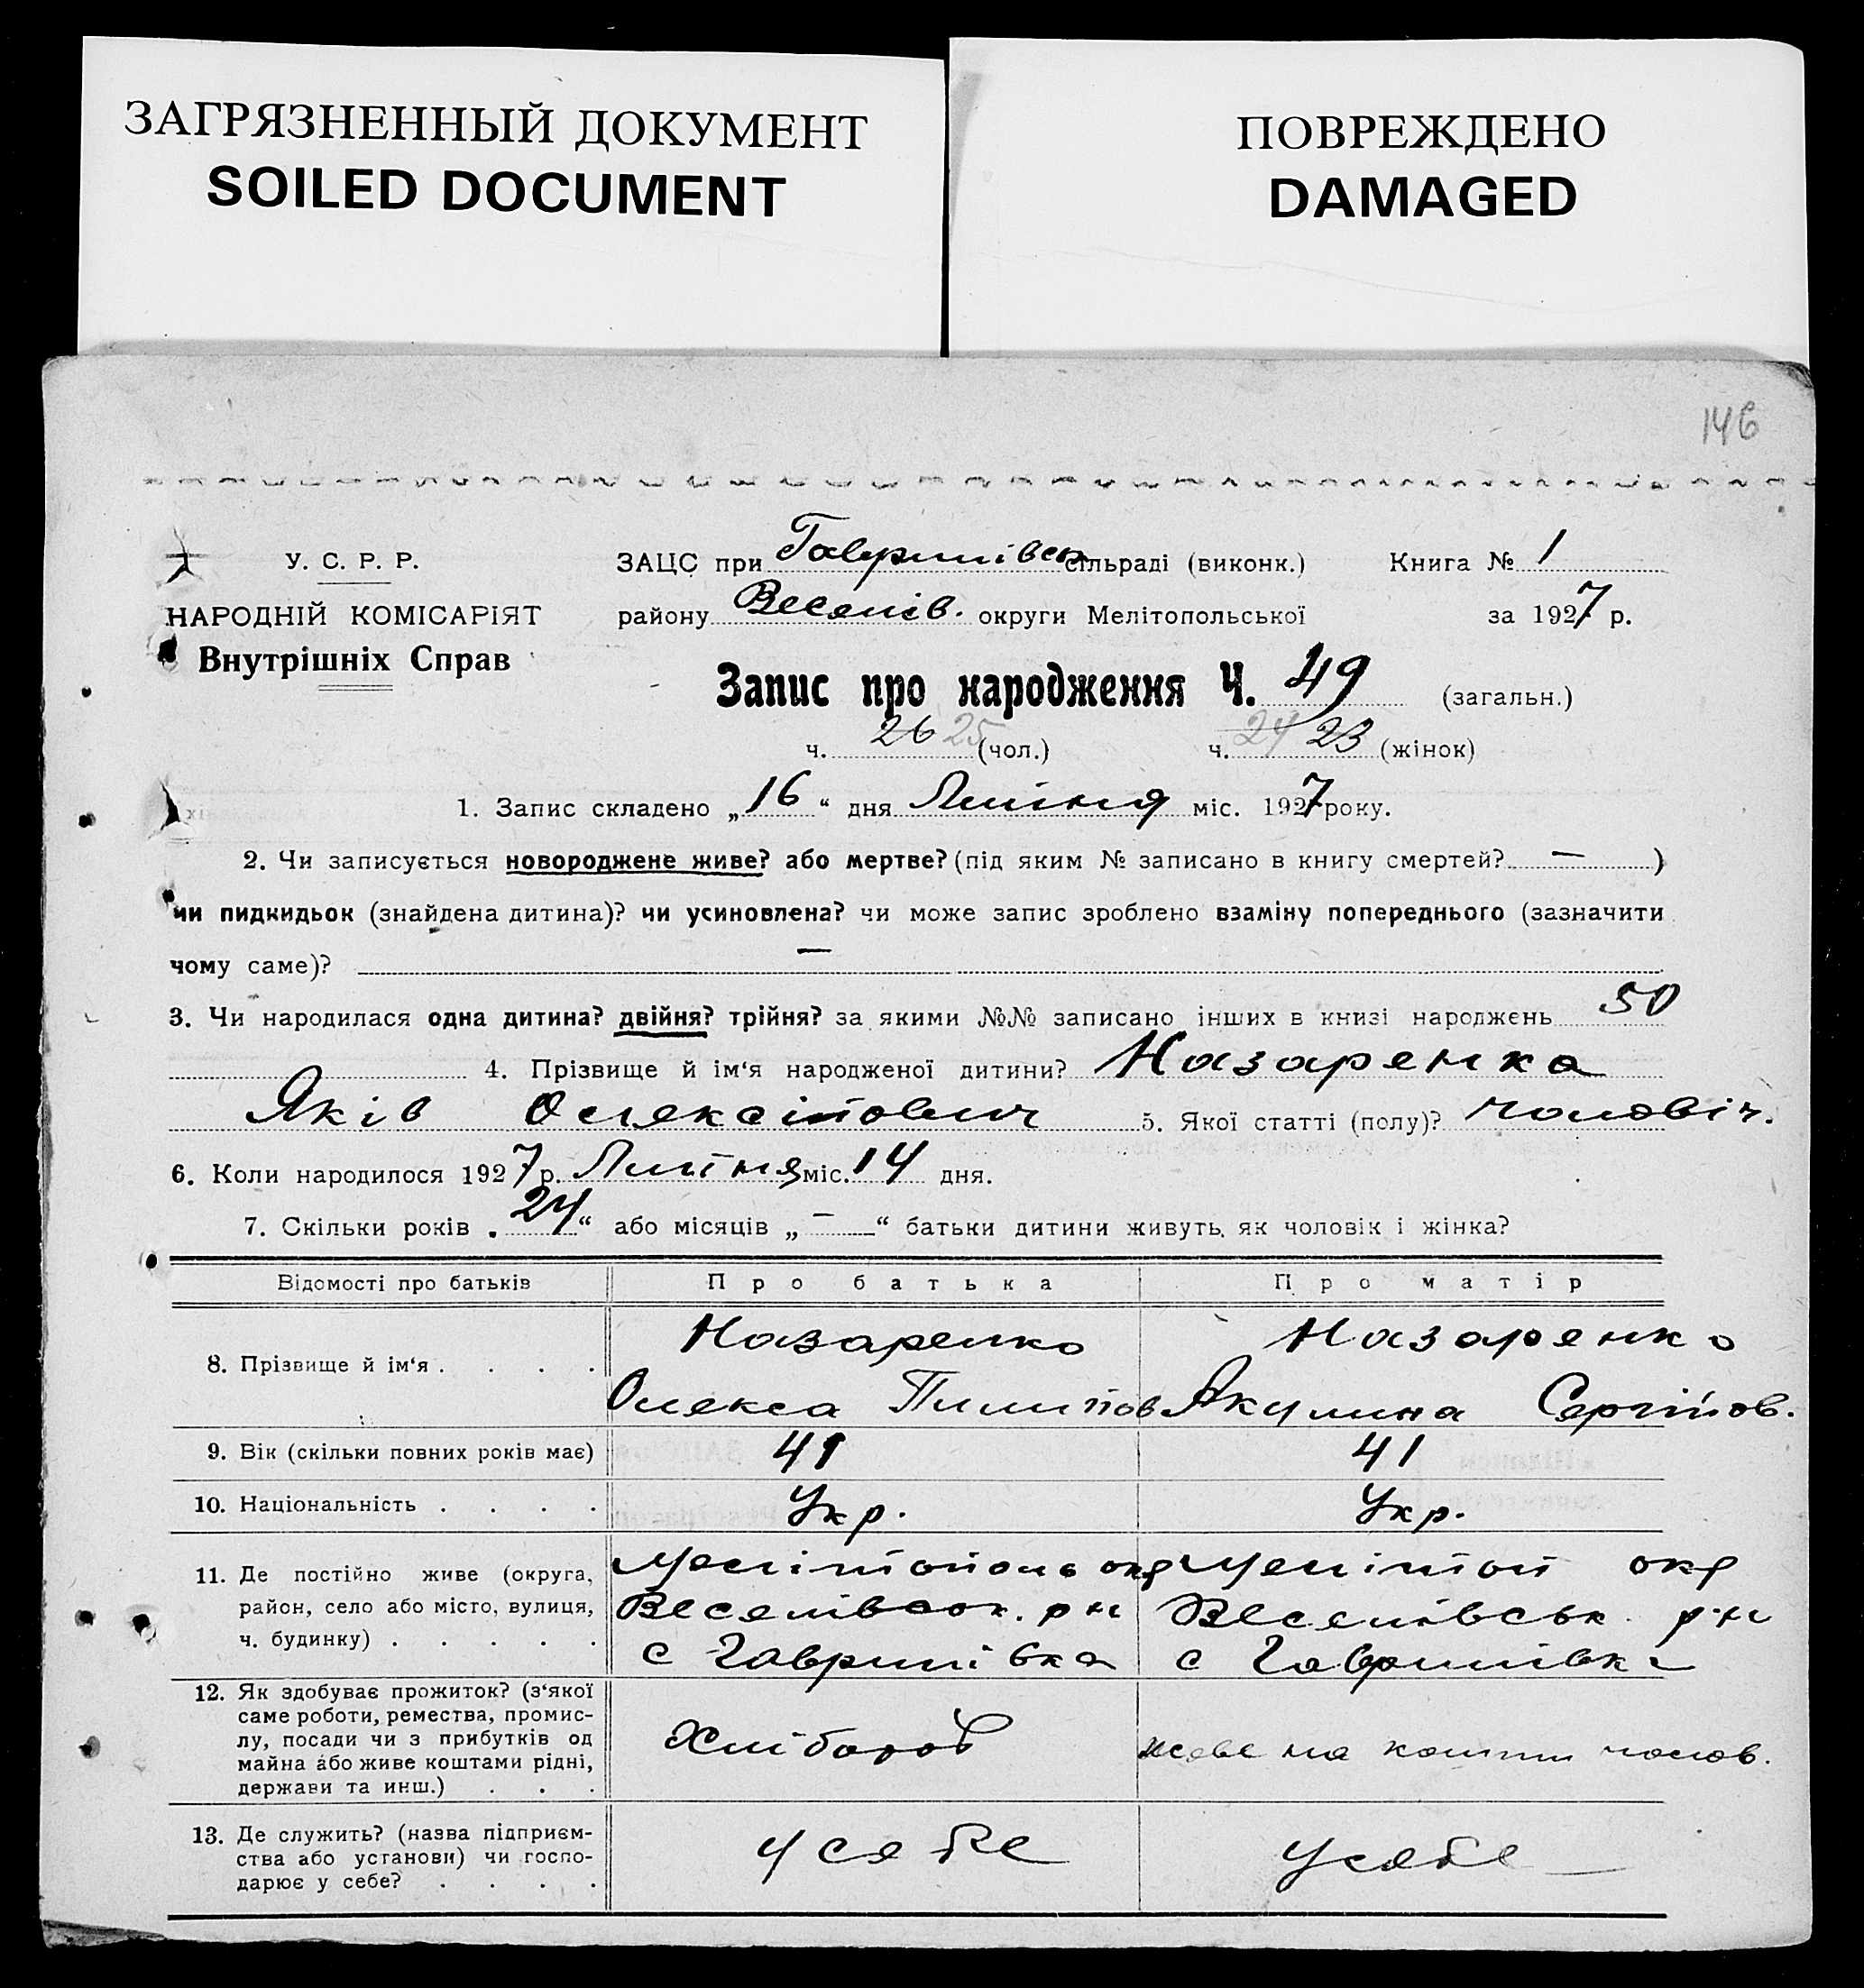 ЗАГРЯЗНЕННЫЙ ДОКУМЕНТ
SOILED DOCUMENT
ПОВРЕЖДЕНО
DAMAGED
146
У. С. Р. Р.
НАРОДНІЙ КОМІСАРІЯТ
Внутрішніх Справ
ЗАЦС при Гаврилівск сільраді (виконк.) Книга № 1
району Веселів. округи Мелітопольської за 1927 р.
Запис про народження Ч. 49 (загальн.)
ч. 26 25 (чол.) ч. 24 23 (жінок)
1. Запис складено „16“ дня Липня міс. 1927 року.
2. Чи записується новороджене живе? або мертве? (під яким № записано в книгу смертей? — )
чи пидкидьок (знайдена дитина)? чи усиновлена? чи може запис зроблено взаміну попереднього (зазначити
чому саме)? —
3. Чи народилася одна дитина? двійня? трійня? за якими №№ записано інших в книзі народжень 50
4. Прізвище й ім‘я народженої дитини? Назаренко
Яків Олексійович 5. Якої статті (полу)? чоловіч.
6. Коли народилося 1927 р. Липня міс. 14 дня.
7. Скільки років „24“ або місяців „—“ батьки дитини живуть, як чоловік і жінка?
Відомості про батьків Про батька Про матір
8. Прізвище й ім‘я . . . . Назаренко Назаренко
Олекса Пилипов Якулина Сергійов.
9. Вік (скільки повних років має) 41 41
10. Національність . . . . Укр. Укр.
11. Де постійно живе (округа, Мелітополь окр Мелітоп окр
район, село або місто, вулиця, Веселівськ. р-н Веселівськ р-н
ч. будинку) . . . . . с Гаврилівка с Гаврилівка
12. Як здобуває прожиток? (з‘якої
саме роботи, ремества, промис-
лу, посади чи з прибутків од Хлібороб живе на кошти чолов.
майна або живе коштами рідні,
держави та инш.) . . .
13. Де служить? (назва підприєм-
ства або установи) чи госпо- у себе у себе
дарює у себе? . . . .